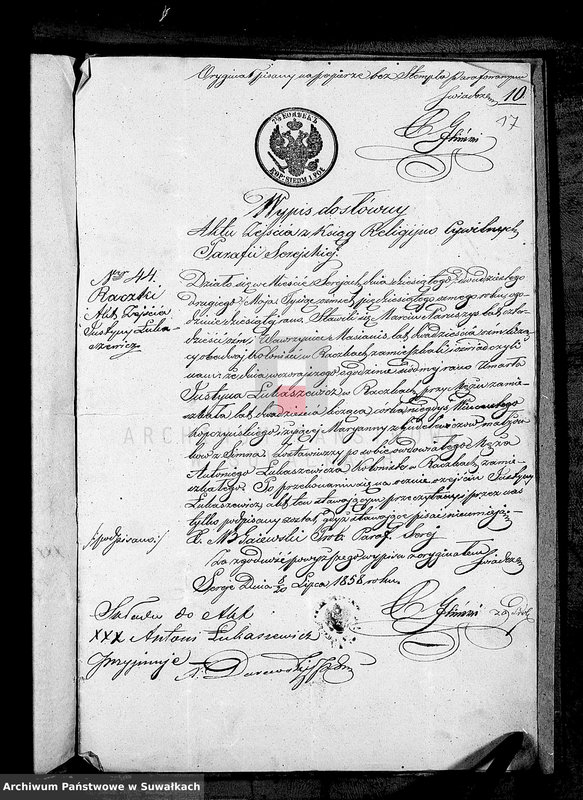 Oryginał pisany na papierze bez Stempla Parafowanym
świadczę 10
17
7½ КОПѢЕКЪ
KOP: SIEDM I POŁ
Wypis dosłówny
Aktu Zejścia z Ksiąg Religijno Cywilnych
Parafii Serejskiej.
Nro 44.
Raczki
Akt Zejścia
Justyny Łuka-
szewicz
Działo się w Mieście Serejach dnia dziesiątego/dwudziestego
drugiego Maja Tysiąc ośmset pięćdziesiątego ósmego roku, o go-
dzinie dziesiątej rano. Stawili się Marcin Pareszys lat czter-
dzieści ośm, i Wawrzyniec Masianis lat dwadzieścia ośm liczą-
cy obadwaj koloniści w Raczkach zamieszkali i oświadczyli
nam iż dnia wczorajszego o godzinie siódmej rano Umarła
Justyna Łukaszewicz w Raczkach przy Mężu zamie-
szkała, lat dwadzieścia licząca, córka niegdyś Wincentego
Kopczyńskiego i żyjącej Maryanny z małżon-
ków z Simna. Zostawiwszy po sobie owdowiałego Męża
Antoniego Łukaszewicza Kolonistę w Raczkach zamie-
szkałego. Po przekonaniu się na ocznie o zejściu Justyny
Łukaszewicz akt ten stawającym przeczytany i przez nas
tylko podpisany został, gdyż stawający pisać nieumieją.
/:podpisano:/ X. Prob: Paraf. Serej
Za zgodność powyższego wypisu z oryginałem
świadczę
Sereje Dnia 8/20 Lipca 1858 roku.
Składa do Akt
XXX Antoni Łukaszewicz
Przyjmuje
ARCHIWUM PAŃSTWOWE
Archiwum Państwowe w Suwałkach